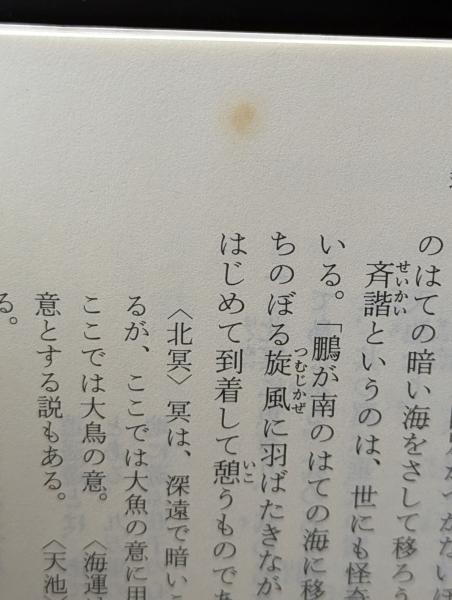 のはての暗い海をさして移ろう
斉諧というのは、世にも怪奇
いる。「鵬が南のはての海に移
ちのぼる旋風に羽ばたきなが
はじめて到着して憩うものであ
〈北冥〉冥は、深遠で暗い
るが、ここでは大魚の意に用
ここでは大鳥の意。〈海運
意とする説もある。〈天池〉
る。